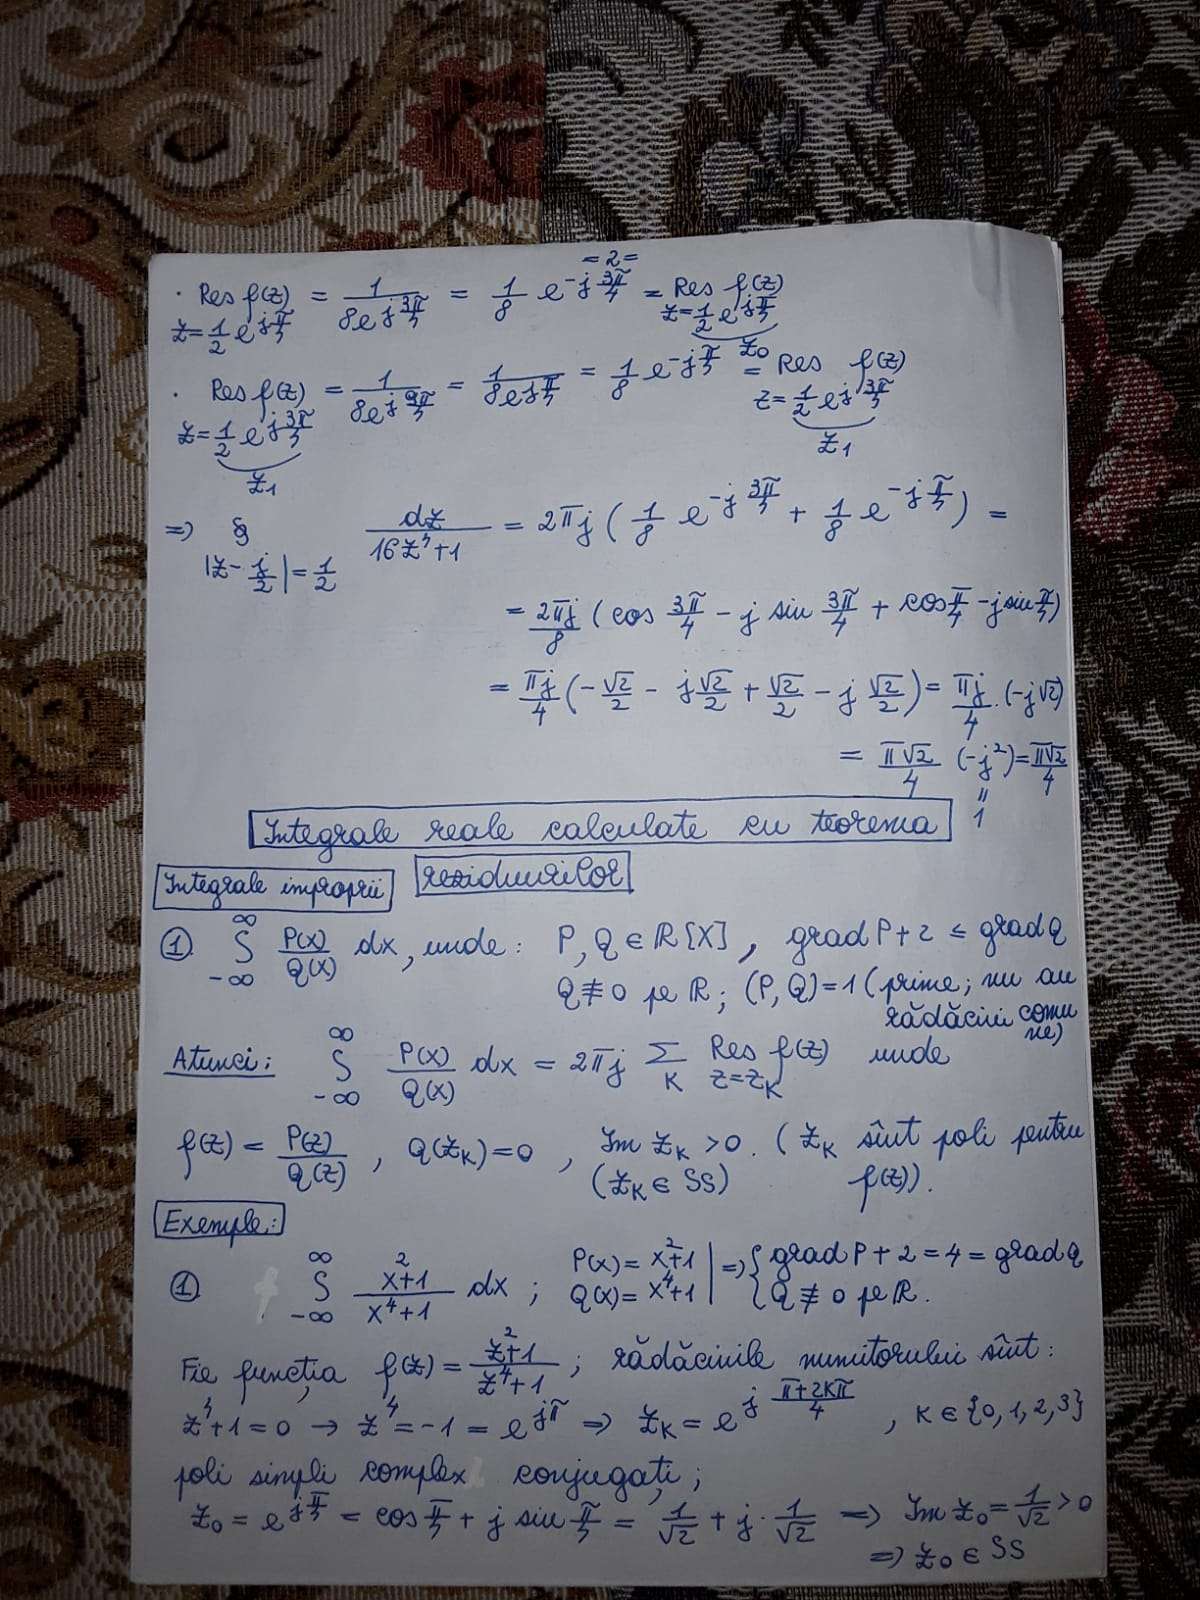 = 2 =
· Res f(z) = 1/(8e^{j3π/4}) = 1/8 e^{-j3π/4} = Res f(z)
z = 1/2 e^{jπ/4} z = 1/2 e^{jπ/4}
z₀
· Res f(z) = 1/(8e^{j9π/4}) = 1/(8e^{jπ/4}) = 1/8 e^{-jπ/4} = Res f(z)
z = 1/2 e^{j3π/4} z = 1/2 e^{j3π/4}
z₁ z₁
=> ∮ dz/(16z⁴+1) = 2πj ( 1/8 e^{-j3π/4} + 1/8 e^{-jπ/4} ) =
|z - j/2| = 1/2
= 2πj/8 ( cos 3π/4 - j sin 3π/4 + cos π/4 - j sin π/4 )
= πj/4 ( -√2/2 - j√2/2 + √2/2 - j √2/2 ) = πj/4 · (-j√2)
= π√2/4 (-j²) = π√2/4
"
1
Integrale reale calculate cu teorema
reziduurilor
Integrale improprii
① ∫_{-∞}^{∞} P(x)/Q(x) dx, unde: P, Q ∈ R[X], grad P + 2 ≤ grad Q
Q ≢ 0 pe R; (P, Q) = 1 (prime; nu au
rădăcini comu
ne)
Atunci: ∫_{-∞}^{∞} P(x)/Q(x) dx = 2πj Σ_K Res f(z) unde
z = z_K
f(z) = P(z)/Q(z), Q(z_K) = 0, Im z_K > 0. (z_K sînt poli pentru
(z_K ∈ SS) f(z)).
Exemple:
① ∫_{-∞}^{∞} (x²+1)/(x⁴+1) dx; P(x) = x²+1 | => { grad P + 2 = 4 = grad Q
Q(x) = x⁴+1 | Q ≢ 0 pe R.
Fie funcția f(z) = (z²+1)/(z⁴+1); rădăcinile numitorului sînt:
z⁴+1 = 0 → z⁴ = -1 = e^{jπ} => z_K = e^{j(π+2Kπ)/4}, K ∈ {0, 1, 2, 3}
poli simpli complex conjugați;
z₀ = e^{jπ/4} = cos π/4 + j sin π/4 = 1/√2 + j · 1/√2 => Im z₀ = 1/√2 > 0
=> z₀ ∈ SS